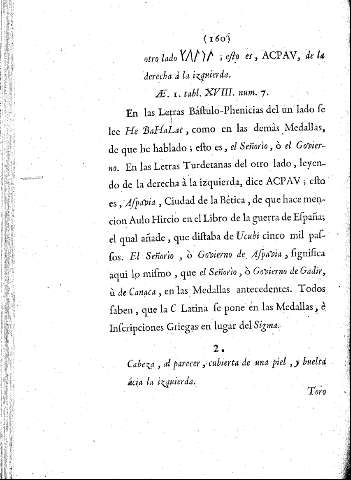 (160)
otro lado ; esto es, ACPAV, de la
derecha à la izquierda.
Æ. 1. tabl. XVIII. num. 7.
En las Letras Bástulo-Phenicias del un lado se
lee He BaHaLat, como en las demàs Medallas,
de que he hablado; esto es, el Señorio, ò el Govier-
no. En las Letras Turdetanas del otro lado, leyen-
do de la derecha à la izquierda, dice ACPAV; esto
es, Aspavia, Ciudad de la Bética, de que hace men-
cion Aulo Hircio en el Libro de la guerra de España;
el qual añade, que distaba de Ucubi cinco mil pas-
sos. El Señorio, ò Govierno de Aspavia, significa
aqui lo mismo, que el Señorio, ò Govierno de Gadir,
ù de Canaca, en las Medallas antecedentes. Todos
saben, que la C Latina se pone en las Medallas, è
Inscripciones Griegas en lugar del Sigma.
2.
Cabeza, al parecer, cubierta de una piel, y buelta
ácia la izquierda.
Toro